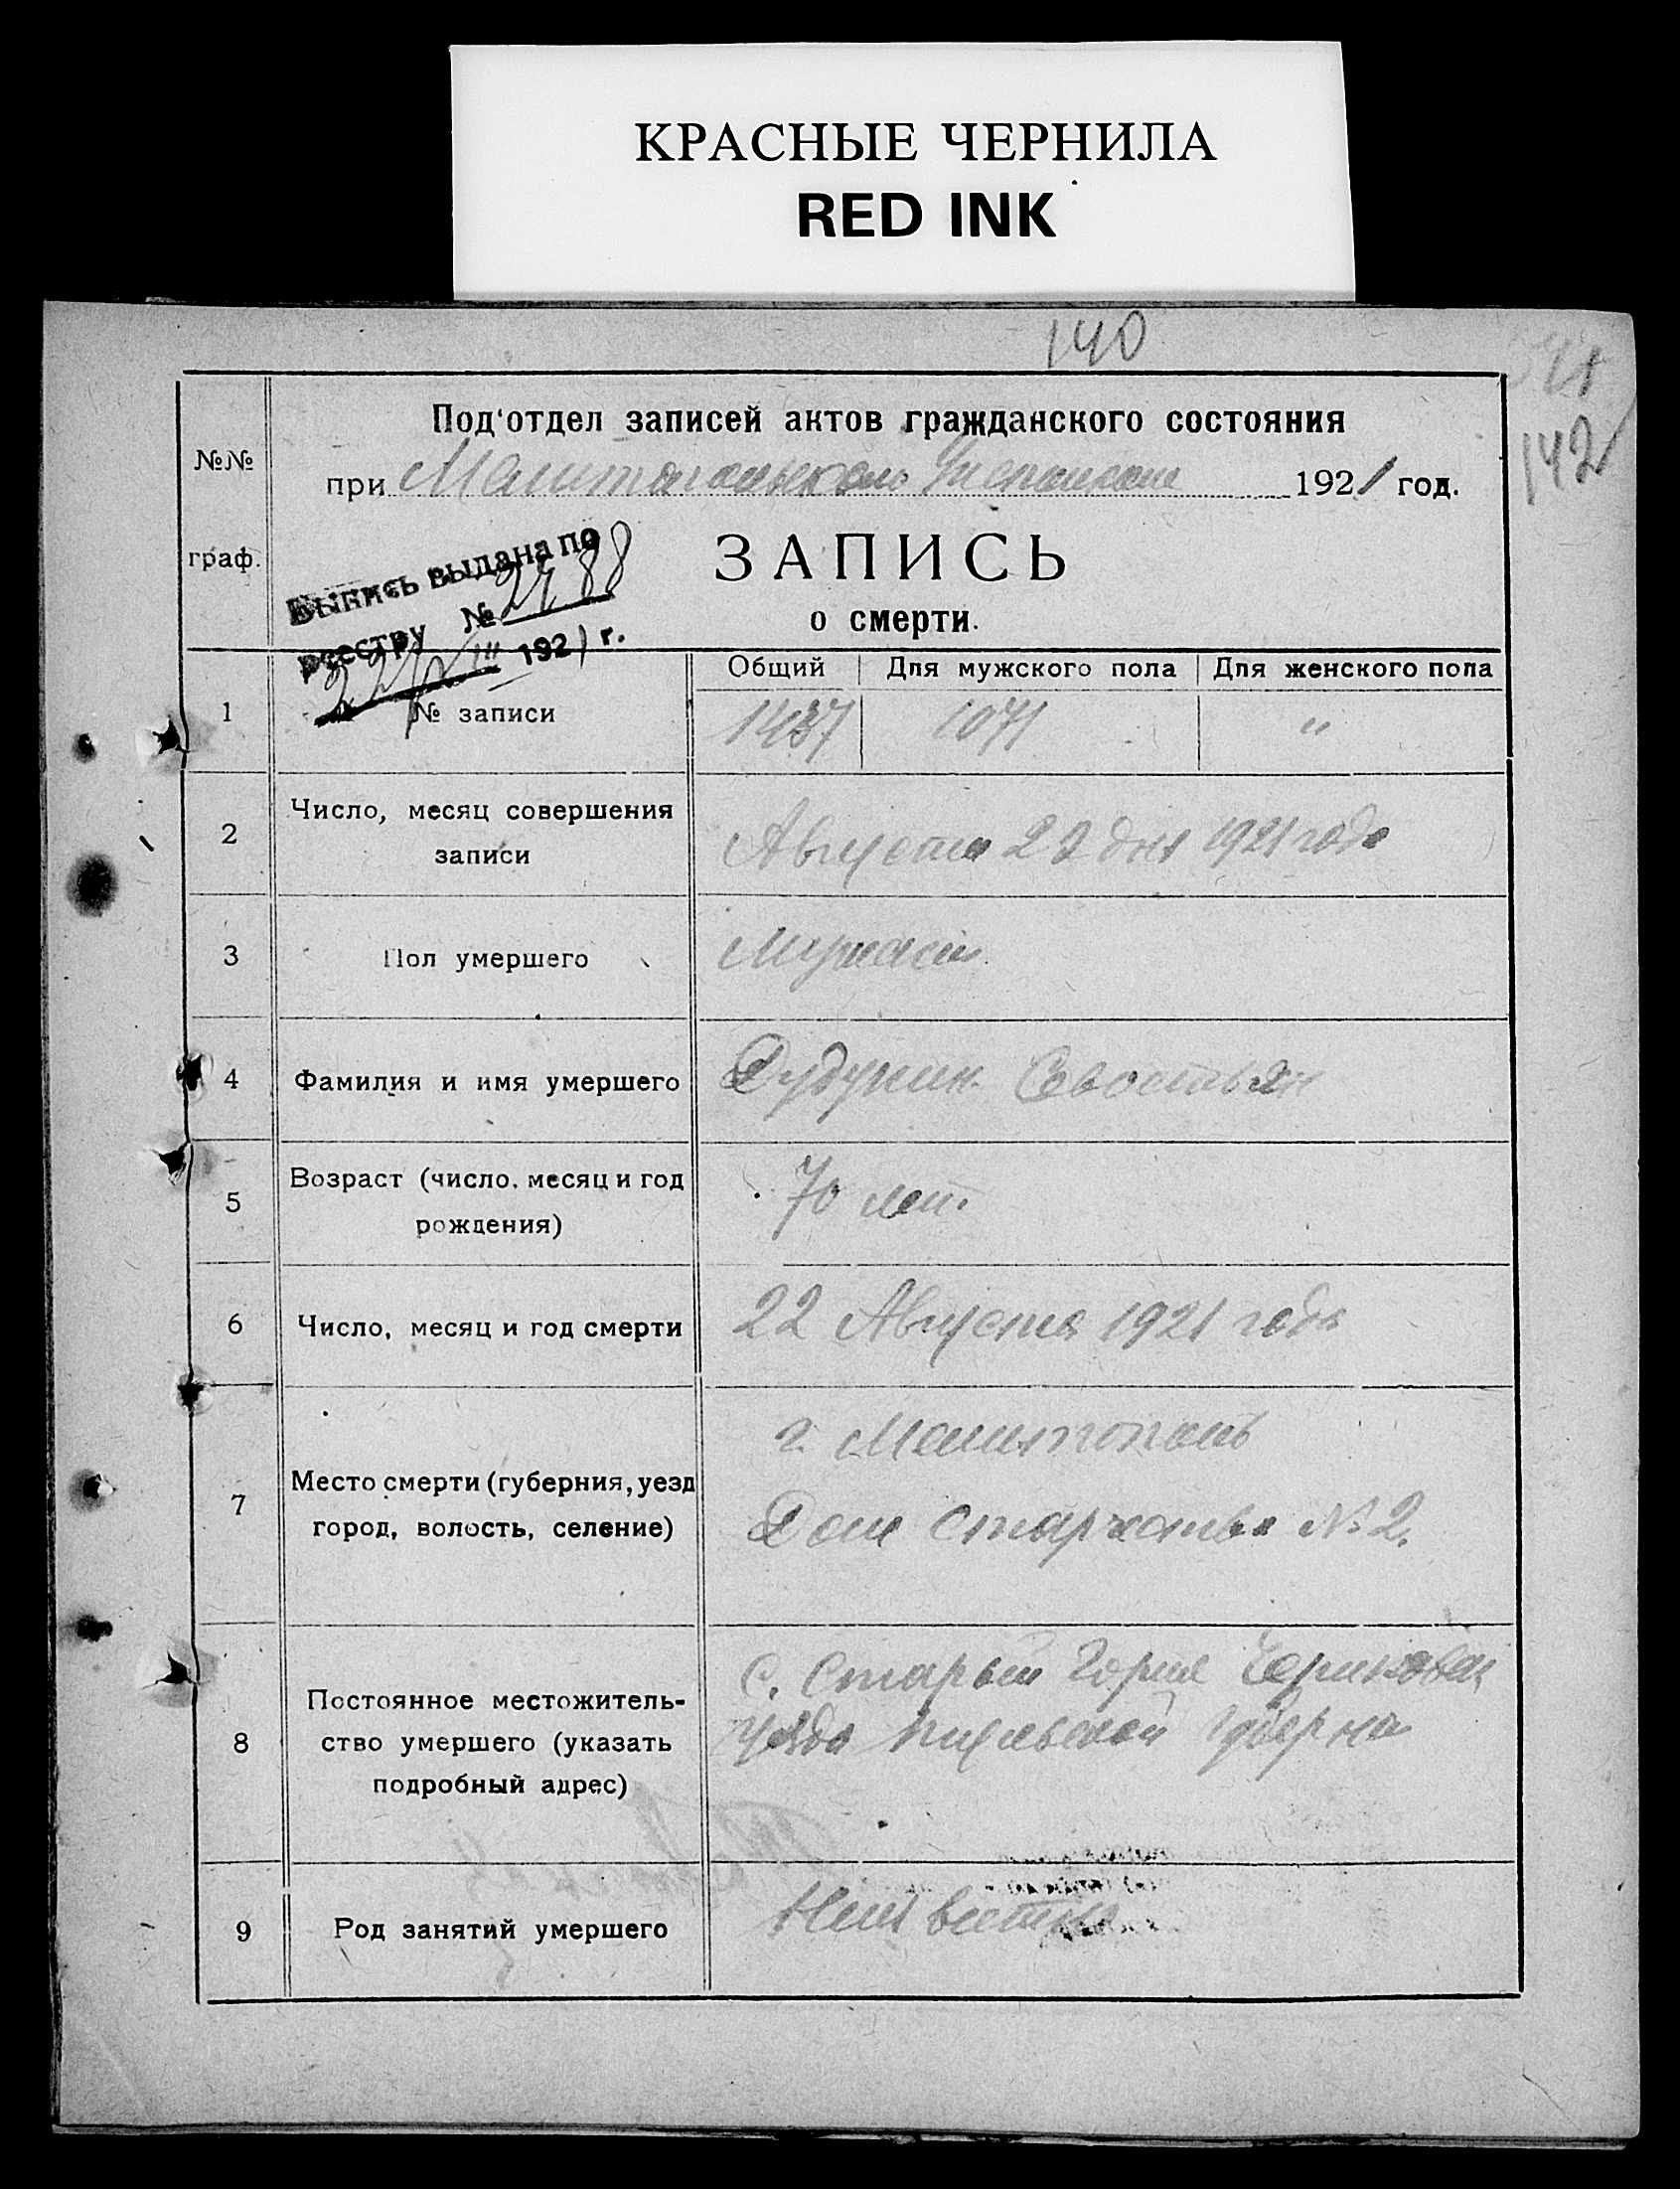 КРАСНЫЕ ЧЕРНИЛА
RED INK
140
142
Под'отдел записей актов гражданского состояния
№№
при Мелитопольском 1921 год.
граф.
ЗАПИСЬ
о смерти.
Выпись выдана по
реестру № 2488
1921 г.
Общий Для мужского пола Для женского пола
1 № записи 1437 1071 "
2 Число, месяц совершения
записи
Августа 22 дня 1921 года
3 Пол умершего Мужской
4 Фамилия и имя умершего Севостьян
5 Возраст (число, месяц и год
рождения)
70 лет.
6 Число, месяц и год смерти 22 Августа 1921 года
г. Мелитополь
7 Место смерти (губерния, уезд
город, волость, селение)
Дом Старчества № 2.
8 Постоянное местожитель-
ство умершего (указать
подробный адрес)
с. Старый
уезда губерна
9 Род занятий умершего